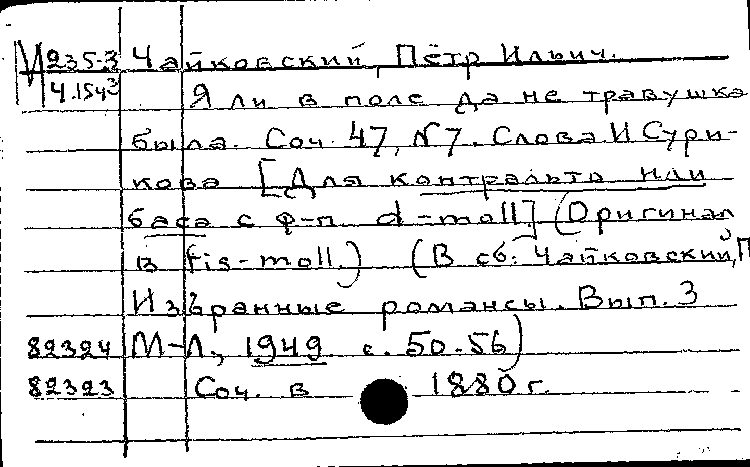 М 235-3 Чайковский, Пётр Ильич.
4.154³ Я ли в поле да не травушка
была. Соч. 47, №7. Слова И Сури-
кова [Для контральто или
баса с ф-п. d-moll] (Оригинал
в fis-moll.) (В сб: Чайковский, П
Избранные романсы. Вып. 3
82324 М-Л., 1949 с. 50-56)
82323 Соч. в 1880 г.